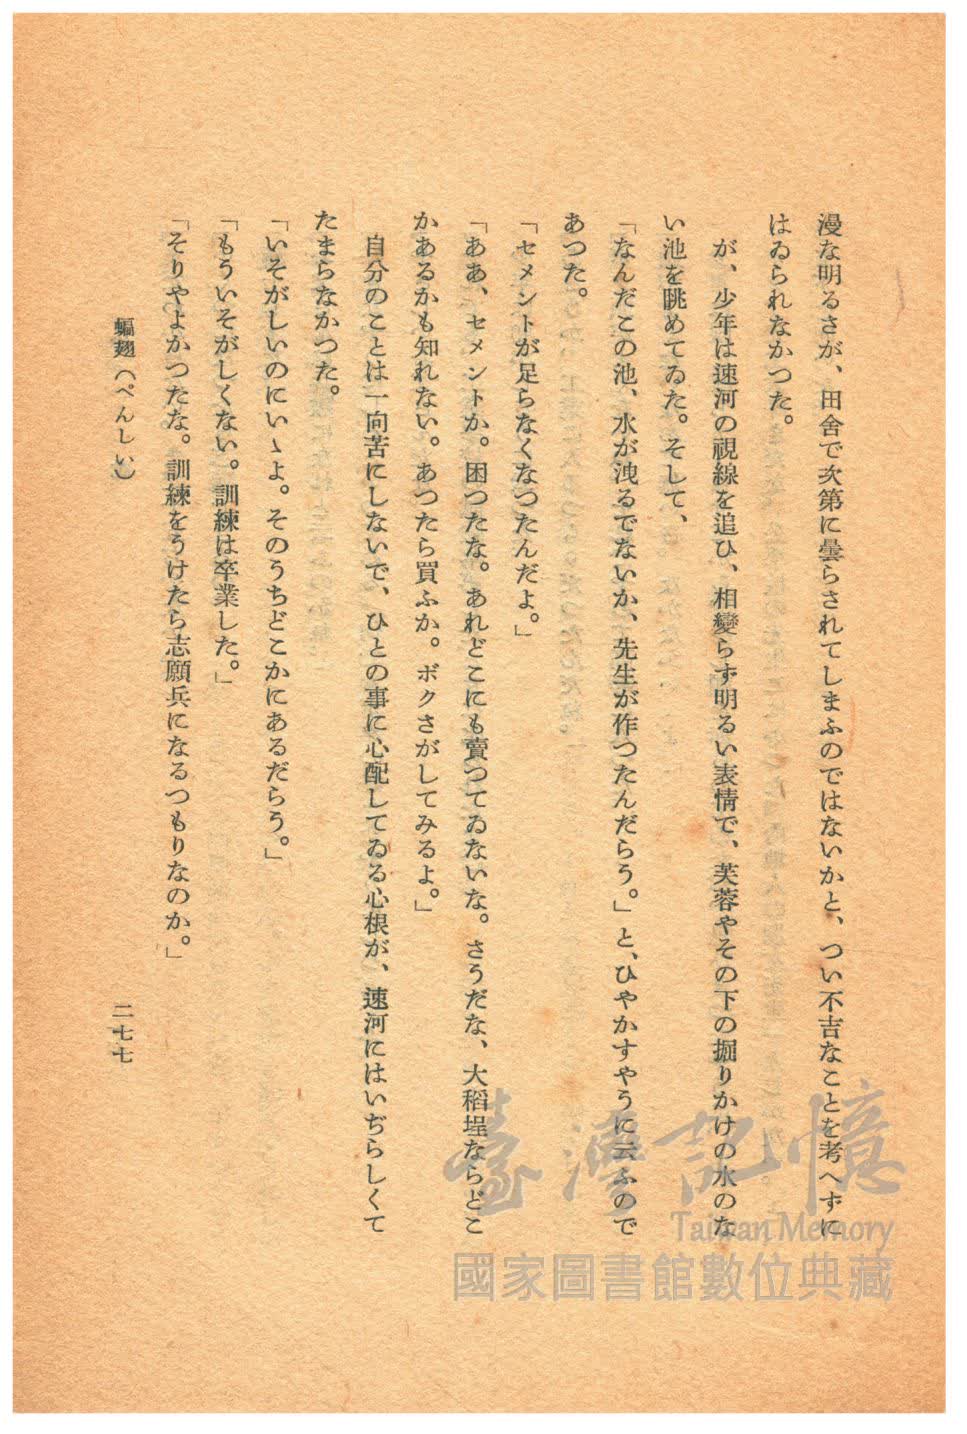 漫な明るさが、田舎で次第に曇らされてしまふのではないかと、つい不吉なことを考へずに
はゐられなかつた。
が、少年は速河の視線を追ひ、相變らず明るい表情で、芙蓉やその下の掘りかけの水のな
い池を眺めてゐた。そして、
「なんだこの池、水が洩るでないか、先生が作つたんだらう。」と、ひやかすやうに云ふので
あつた。
「セメントが足らなくなつたんだよ。」
「ああ、セメントか。困つたな。あれどこにも賣つてゐないな。さうだな、大稻埕ならどこ
かあるかも知れない。あつたら買ふか。ボクさがしてみるよ。」
自分のことは一向苦にしないで、ひとの事に心配してゐる心根が、速河にはいぢらしくて
たまらなかつた。
「いそがしいのにいゝよ。そのうちどこかにあるだらう。」
「もういそがしくない。訓練は卒業した。」
「そりやよかつたな。訓練をうけたら志願兵になるつもりなのか。」
蝙翅（ぺんしい）
二七七
臺灣記憶
Taiwan Memory
國家圖書館數位典藏